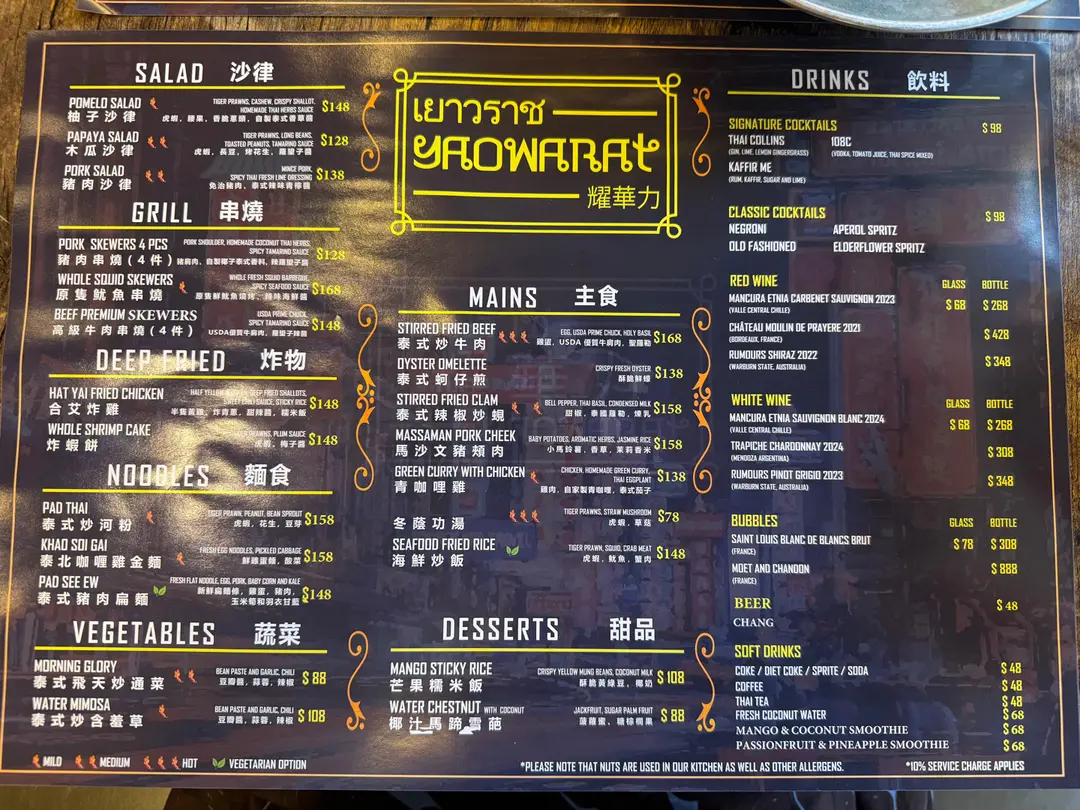 SALAD 沙律
POMELO SALAD
柚子沙律
TIGER PRAWNS, CASHEW, CRISPY SHALLOT,
HOMEMADE THAI HERBS SAUCE
虎蝦，腰果，香脆蔥頭，自製泰式香草醬
$148
PAPAYA SALAD
木瓜沙律
TIGER PRAWNS, LONG BEANS,
TOASTED PEANUTS, TAMARIND SAUCE
虎蝦，長豆，烤花生，羅望子醬
$128
PORK SALAD
豬肉沙律
MINCE PORK,
SPICY THAI FRESH LIME DRESSING
免治豬肉，泰式辣味青檸醬
$138
GRILL 串燒
PORK SKEWERS 4 PCS
豬肉串燒(4件)
PORK SHOULDER, HOMEMADE COCONUT THAI HERBS,
SPICY TAMARIND SAUCE
豬肩肉，自製椰子泰式香料，辣羅望子醬
$128
WHOLE SQUID SKEWERS
原隻魷魚串燒
WHOLE FRESH SQUID BARBEQUE,
SPICY SEAFOOD SAUCE
原隻鮮魷魚燒烤，辣味海鮮醬
$168
BEEF PREMIUM SKEWERS
高級牛肉串燒(4件)
USDA PRIME CHUCK,
SPICY TAMARIND SAUCE
USDA優質牛肩肉，羅望子辣醬
$148
DEEP FRIED 炸物
HAT YAI FRIED CHICKEN
合艾炸雞
HALF YELLOW CHICKEN, DEEP FRIED SHALLOTS,
SWEET CHILI SAUCE, STICKY RICE
半隻黃雞，炸青蔥，甜辣醬，糯米飯
$148
WHOLE SHRIMP CAKE
炸蝦餅
PRAWNS, PLUM SAUCE
虎蝦，梅子醬
$148
NOODLES 麵食
PAD THAI
泰式炒河粉
TIGER PRAWN, PEANUT, BEAN SPROUT
虎蝦，花生，豆芽
$158
KHAO SOI GAI
泰北咖喱雞金麵
FRESH EGG NOODLES, PICKLED CABBAGE
鮮雞蛋麵，酸菜
$158
PAD SEE EW
泰式豬肉扁麵
FRESH FLAT NOODLE, EGG, PORK, BABY CORN AND KALE
新鮮扁麵條，雞蛋，豬肉，
玉米筍和羽衣甘藍
$148
VEGETABLES 蔬菜
MORNING GLORY
泰式飛天炒通菜
BEAN PASTE AND GARLIC, CHILI
豆瓣醬，蒜蓉，辣椒
$88
WATER MIMOSA
泰式炒含羞草
BEAN PASTE AND GARLIC, CHILI
豆瓣醬，蒜蓉，辣椒
$108
MILD MEDIUM HOT VEGETARIAN OPTION
เยาวราช
YAOWARAT
耀華力
MAINS 主食
STIRRED FRIED BEEF
泰式炒牛肉
EGG, USDA PRIME CHUCK, HOLY BASIL
雞蛋，USDA 優質牛肩肉，聖羅勒
$168
OYSTER OMELETTE
泰式蚵仔煎
CRISPY FRESH OYSTER
酥脆鮮蠔
$138
STIRRED FRIED CLAM
泰式辣椒炒蜆
BELL PEPPER, THAI BASIL, CONDENSED MILK
甜椒，泰國羅勒，煉乳
$158
MASSAMAN PORK CHEEK
馬沙文豬頰肉
BABY POTATOES, AROMATIC HERBS, JASMINE RICE
小馬鈴薯，香草，茉莉香米
$158
GREEN CURRY WITH CHICKEN
青咖哩雞
CHICKEN, HOMEMADE GREEN CURRY,
THAI EGGPLANT
雞肉，自家製青咖哩，泰式茄子
$138
冬蔭功湯
TIGER PRAWNS, STRAW MUSHROOM
虎蝦，草菇
$78
SEAFOOD FRIED RICE
海鮮炒飯
TIGER PRAWN, SQUID, CRAB MEAT
虎蝦，魷魚，蟹肉
$148
DESSERTS 甜品
MANGO STICKY RICE
芒果糯米飯
CRISPY YELLOW MUNG BEANS, COCONUT MILK
酥脆黃綠豆，椰奶
$108
WATER CHESTNUT WITH COCONUT
椰汁馬蹄雪葩
JACKFRUIT, SUGAR PALM FRUIT
菠蘿蜜，糖棕櫚果
$88
*PLEASE NOTE THAT NUTS ARE USED IN OUR KITCHEN AS WELL AS OTHER ALLERGENS.
DRINKS 飲料
SIGNATURE COCKTAILS $98
THAI COLLINS 108C
(GIN, LIME, LEMON GINGERGRASS) (VODKA, TOMATO JUICE, THAI SPICE MIXED)
KAFFIR ME
(RUM, KAFFIR, SUGAR AND LIME)
CLASSIC COCKTAILS $98
NEGRONI APEROL SPRITZ
OLD FASHIONED ELDERFLOWER SPRITZ
RED WINE GLASS BOTTLE
MANCURA ETNIA CARBENET SAUVIGNON 2023 $68 $268
(VALLE CENTRAL CHILLE)
CHÂTEAU MOULIN DE PRAYERE 2021 $428
(BORDEAUX, FRANCE)
RUMOURS SHIRAZ 2022 $348
(WARBURN STATE, AUSTRALIA)
WHITE WINE GLASS BOTTLE
MANCURA ETNIA SAUVIGNON BLANC 2024 $68 $268
(VALLE CENTRAL CHILLE)
TRAPICHE CHARDONNAY 2024 $308
(MENDOZA ARGENTINA)
RUMOURS PINOT GRIGIO 2023 $348
(WARBURN STATE, AUSTRALIA)
BUBBLES GLASS BOTTLE
SAINT LOUIS BLANC DE BLANCS BRUT $78 $308
(FRANCE)
MOET AND CHANDON $888
(FRANCE)
BEER $48
CHANG
SOFT DRINKS
COKE / DIET COKE / SPRITE / SODA $48
COFFEE $48
THAI TEA $48
FRESH COCONUT WATER $68
MANGO & COCONUT SMOOTHIE $68
PASSIONFRUIT & PINEAPPLE SMOOTHIE $68
*10% SERVICE CHARGE APPLIES